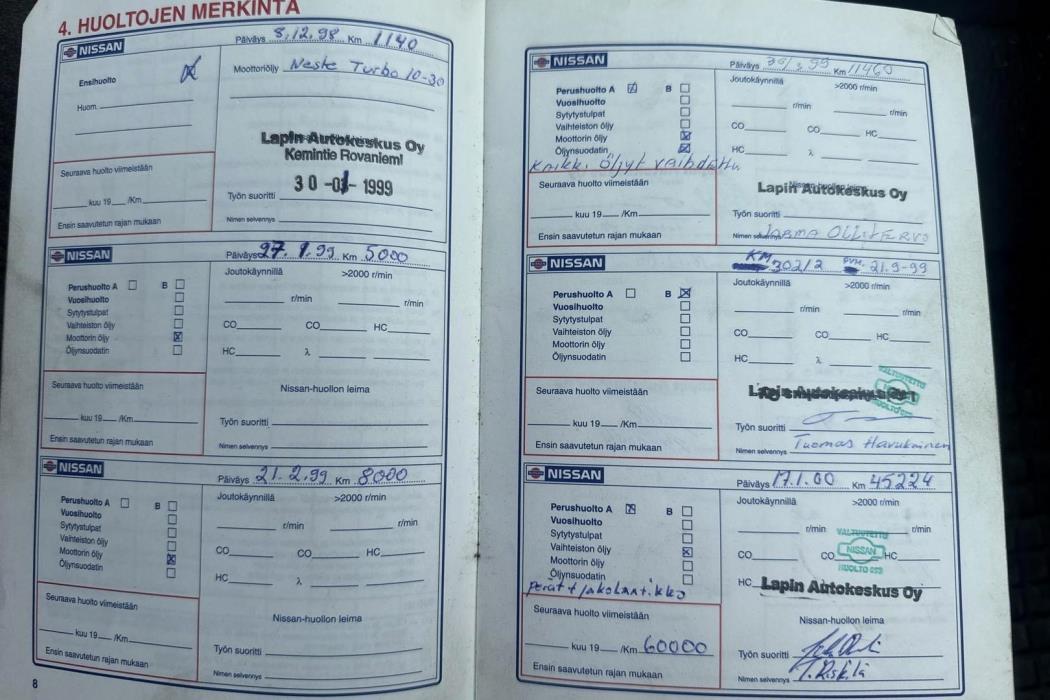 4. HUOLTOJEN MERKINTÄ
NISSAN
Päiväys 8.12.98 Km 1140
Ensihuolto
Moottoriöljy Neste Turbo 10-30
Huom.
Lapin Autokeskus Oy
Kemintie Rovaniemi
30 -01- 1999
Seuraava huolto viimeistään
kuu 19 /Km
Työn suoritti
Ensin saavutetun rajan mukaan
Nimen selvennys
NISSAN
Päiväys 27.1.99 Km 5000
Perushuolto A B
Joutokäynnillä >2000 r/min
Vuosihuolto
Sytytystulpat
r/min r/min
Vaihteiston öljy
CO CO HC
Moottorin öljy
Öljynsuodatin
HC λ
Seuraava huolto viimeistään
Nissan-huollon leima
kuu 19 /Km
Työn suoritti
Ensin saavutetun rajan mukaan
Nimen selvennys
NISSAN
Päiväys 21.2.99 Km 8000
Perushuolto A B
Joutokäynnillä >2000 r/min
Vuosihuolto
Sytytystulpat
r/min r/min
Vaihteiston öljy
Moottorin öljy
CO CO HC
Öljynsuodatin
HC λ
Seuraava huolto viimeistään
Nissan-huollon leima
kuu 19 /Km
Työn suoritti
Ensin saavutetun rajan mukaan
Nimen selvennys
8
NISSAN
Päiväys Km 11460
Perushuolto A B
Joutokäynnillä >2000 r/min
Vuosihuolto
Sytytystulpat
r/min r/min
Vaihteiston öljy
CO CO HC
Moottorin öljy
Öljynsuodatin
HC λ
Kaikki öljyt vaihdettu
Seuraava huolto viimeistään
Nissan-huollon leima
Lapin Autokeskus Oy
kuu 19 /Km
Työn suoritti
Ensin saavutetun rajan mukaan
Nimen selvennys JARMA
NISSAN
KM 30212 PVM. 21.9-99
Perushuolto A B
Joutokäynnillä >2000 r/min
Vuosihuolto
Sytytystulpat
r/min r/min
Vaihteiston öljy
CO CO HC
Moottorin öljy
Öljynsuodatin
HC λ
VALTUUTETTU
NISSAN
Seuraava huolto viimeistään
Lapin Autokeskus Oy
kuu 19 /Km
Työn suoritti
Ensin saavutetun rajan mukaan
Nimen selvennys Tuomas Havukainen
NISSAN
Päiväys 17.1.00 Km 45224
Perushuolto A B
Joutokäynnillä >2000 r/min
Vuosihuolto
Sytytystulpat
r/min r/min
VALTUUTETTU
Vaihteiston öljy
CO CO HC
NISSAN
Moottorin öljy
HUOLTO 053
Öljynsuodatin
HC Lapin Autokeskus Oy
perät + jakolaatikko
Seuraava huolto viimeistään
Nissan-huollon leima
kuu 19 /Km 60000
Työn suoritti
Ensin saavutetun rajan mukaan
Nimen selvennys